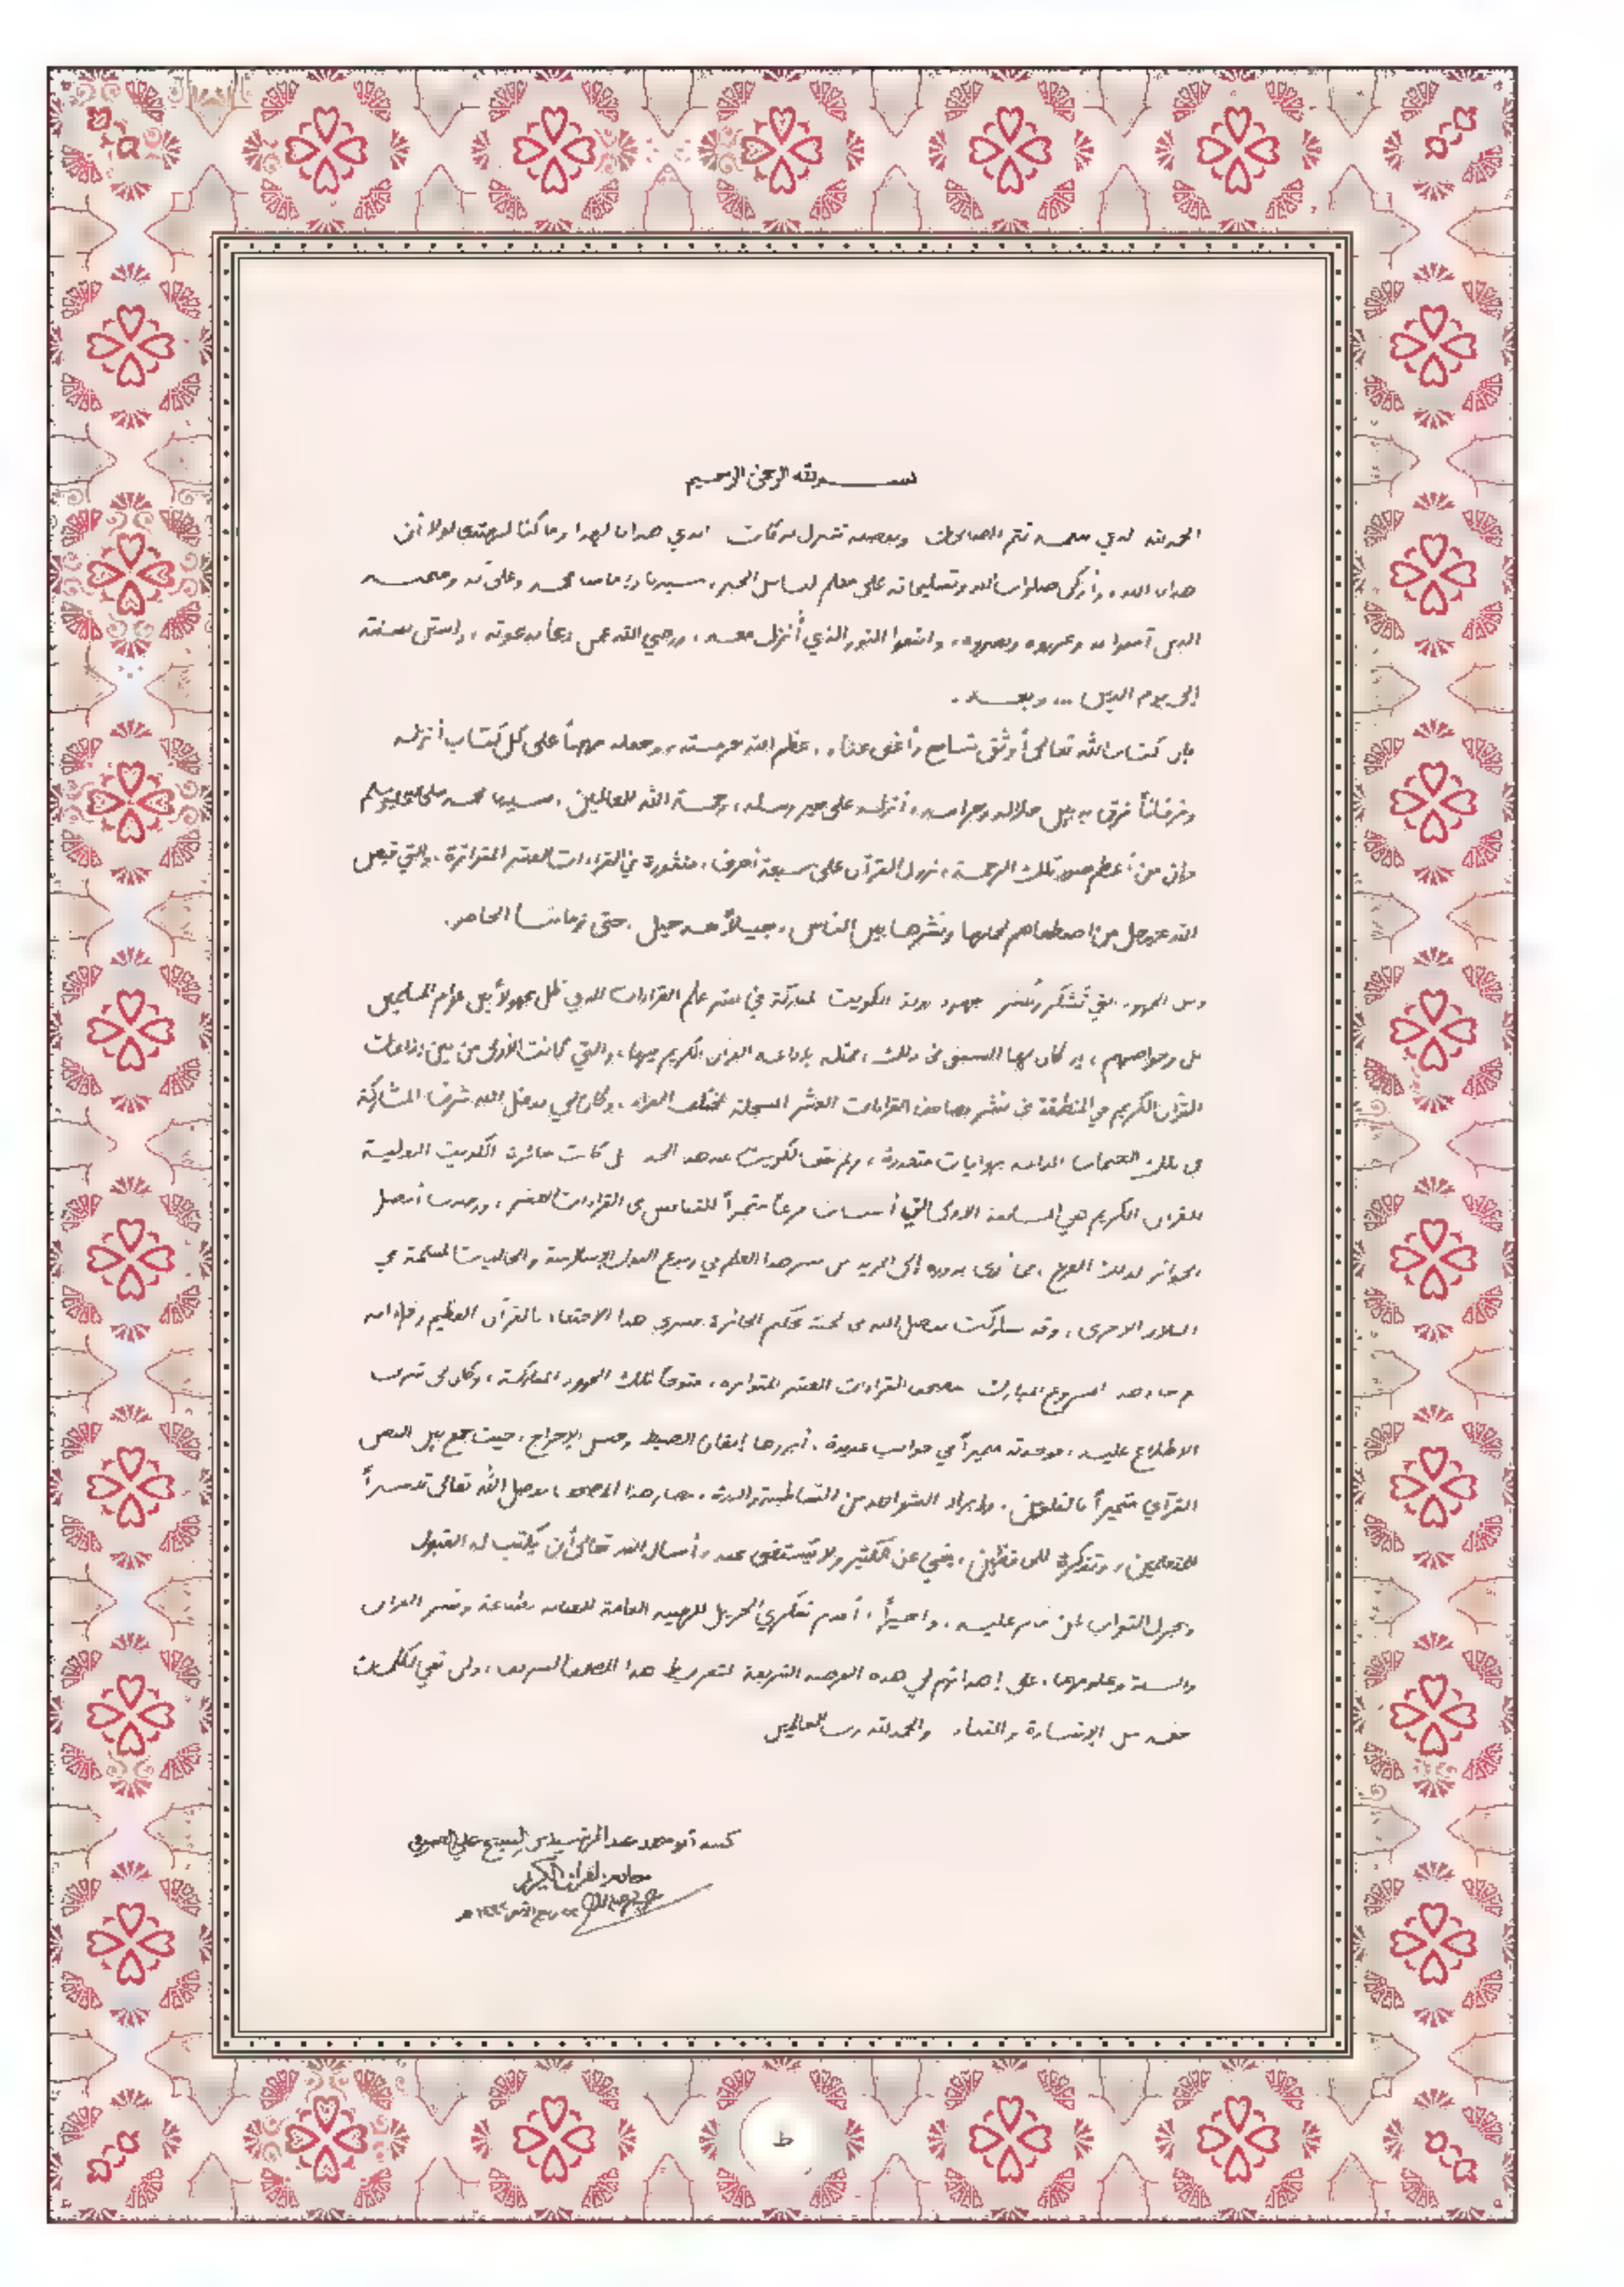 بسم الله الرحمن الرحيم
الحمد لله الذي بنعمته تتم الصالحات وبفضله تتنزل البركات الذي هدانا لهذا وما كنا لنهتدي لولا أن
هدانا الله، وأزكى صلوات الله وتسليماته على معلم الناس الخير، سيدنا وإمامنا محمد وعلى آله وصحبه
الذين آمنوا به وعزروه ونصروه، واتبعوا النور الذي أنزل معه، ورضي الله عمن دعا بدعوته، واستن بسنته
إلى يوم الدين ... وبعد.
فإن كتاب الله تعالى أوثق شافع وأغنى غناء، عظم الله حرمته، وجعله مهيمناً على كل كتاب أنزله
وفرقاناً فرق به بين حلاله وحرامه، أنزله على خير رسله، رحمة الله للعالمين، سيدنا محمد صلى الله عليه وسلم
وإن من أعظم صور تلك الرحمة، نزول القرآن على سبعة أحرف، منثورة في القراءات العشر المتواترة، والتي قيض
الله عز وجل من اصطفاهم لحملها ونشرها بين الناس، جيلاً بعد جيل، حتى زماننا الحاضر.
ومن الجهود التي تُشكر وتُذكر جهود دولة الكويت المباركة في نشر علم القراءات الذي ظل مجهولاً بين عوام المسلمين
بل وخواصهم، إذ كان لها السبق في ذلك، ممثلة بإذاعة القرآن الكريم فيها، والتي كانت الأولى من بين إذاعات
القرآن الكريم في المنطقة في نشر مصاحف القراءات العشر المسجلة لمختلف القراء، وكان لي بفضل الله شرف المشاركة
في تلك الختمات المرتلة بروايات متعددة، ولم تقف الكويت عند هذا الحد بل كانت جائزة الكويت الدولية
للقرآن الكريم هي المسابقة الأولى التي أضافت فرعاً متميزاً للتنافس في القراءات العشر، ورصدت أفضل
الجوائز لذلك الفرع، مما أدى بدوره إلى المزيد من نشر هذا العلم في ربوع الدول الإسلامية والجاليات المسلمة في
البلاد الأخرى، وقد شاركت بفضل الله في لجنة تحكيم الجائزة فسرني هذا الاحتفاء بالقرآن العظيم وقراءاته
ثم جاء هذا المشروع المبارك مصحف القراءات العشر المتواترة، متوجاً لتلك الجهود المباركة، وكان لي شرف
الاطلاع عليه، فوجدته متميزاً في جوانب عديدة، أبرزها إتقان الضبط وحسن الإخراج، حيث جمع بين النص
القرآني متميزاً بالتلوين، وإيراد الشواهد من الشاطبية والدرة، فصار هذا المصحف بفضل الله تعالى تيسيراً
للمتعلمين، وتذكرة للحافظين، يغني عن الكثير ولا يُستغنى عنه، وأسأل الله تعالى أن يكتب له القبول
ويجزل الثواب لمن قام عليه، وأخيراً، أقدم شكري الجزيل للهيئة العامة للعناية بطباعة ونشر القرآن
والسنة وعلومهما، على إهدائهم لي هذه الفرصة الشريفة لتقريظ هذا المصحف الشريف، ولن تفي الكلمات
حقه من الإشادة والثناء والحمد لله رب العالمين
كتبه أبو محمد عبد الرشيد بن الشيخ علي الصوفي
خادم القرآن الكريم
ربيع الآخر هـ
ط